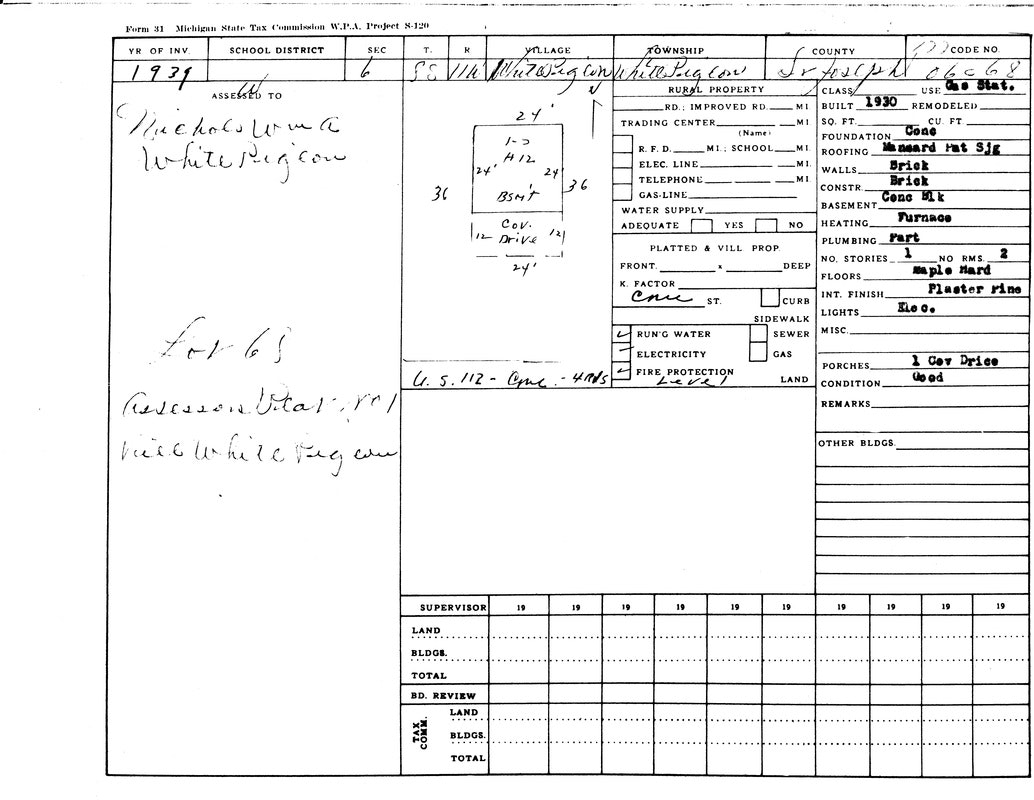 Form 31 Michigan State Tax Commission W.P.A. Project S-120
YR OF INV. SCHOOL DISTRICT SEC T. R VILLAGE TOWNSHIP COUNTY CODE NO.
1939 6 8S 11W White Pigeon White Pigeon St Joseph 06-68
ASSESSED TO
Nichols Wm A
White Pigeon
Lot 68
Assessors Plat No 1
Vill White Pigeon
N
24'
1-S
#12
24' 24'
36 36
BSM'T
COV.
12 DRIVE 12
24'
U.S. 112 - Conc - 4 Rds
RURAL PROPERTY
RD.; IMPROVED RD. MI
TRADING CENTER MI.
(Name)
R. F. D. MI.; SCHOOL MI.
ELEC. LINE MI.
TELEPHONE MI
GAS-LINE
WATER SUPPLY
ADEQUATE YES NO
PLATTED & VILL PROP.
FRONT. x DEEP
K. FACTOR
Conc ST. CURB
SIDEWALK
RUN'G WATER SEWER
ELECTRICITY GAS
FIRE PROTECTION
Level LAND
CLASS USE Gas Stat.
BUILT 1930 REMODELED
SQ. FT. CU. FT.
FOUNDATION Conc
ROOFING Mansard Pat Sjg
WALLS Brick
CONSTR. Brick
BASEMENT Conc Blk
HEATING Furnace
PLUMBING Part
NO. STORIES 1 NO RMS. 2
FLOORS Maple Hard
INT. FINISH Plaster Pine
LIGHTS Elec.
MISC.
PORCHES 1 Cov Drice
CONDITION Good
REMARKS
OTHER BLDGS.
SUPERVISOR 19 19 19 19 19 19 19 19 19 19
LAND
BLDGS.
TOTAL
BD. REVIEW
TAX COMM.
LAND
BLDGS.
TOTAL